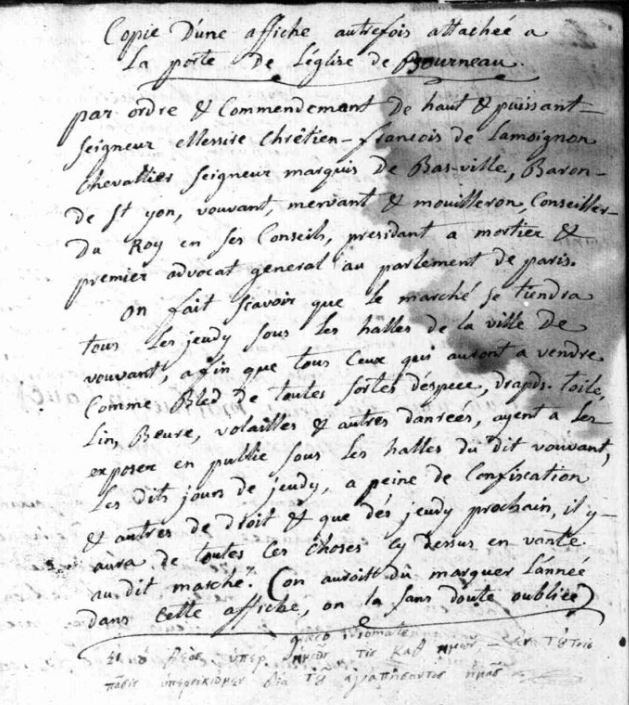 Copie D'une affiche autrefois attachéé a
La porte de L'église de Bourneau.
par ordre & Commendement De haut & puissant
Seigneur Messire Chrêtien-francois de Lamoignon
Chevallier Seigneur marquis De Bas-ville, Baron-
de St yon, vouvant, mervant & mouilleron, Conseiller-
Du Roy en ses Conseils, presidant a mortier &
premier advocat general au parlement de paris.
On fait scavoir que le marché se tiendra
tous les jeudy sous les halles de la ville De
vouvant, afin que tous Ceux qui auront a vendre
Comme Bled de toutes sortes d'espece, draps. toile,
Lin, Beure, volailles & autres danreés, ayent a les
exposer en public sous les halles du dit vouvant,
Les dits jours de jeudy, a peine de Confiscation
& autres de droit & que dés jeudy prochain, il y-
aura de toutes Ces Choses Cy dessus en vante
au dit marché. (on auroit dû marquer L'anneé
dans Cette affiche, on la sans doute oublieé)
graeco idiomate
Ει ὁ θεὸς ὑπερ ἡμῶν τίς καθ ἡμῶν, εν τούτοις
πᾶσιν ὑπερνικῶμεν διὰ τοῦ ἀγαπήσαντος ἡμᾶς